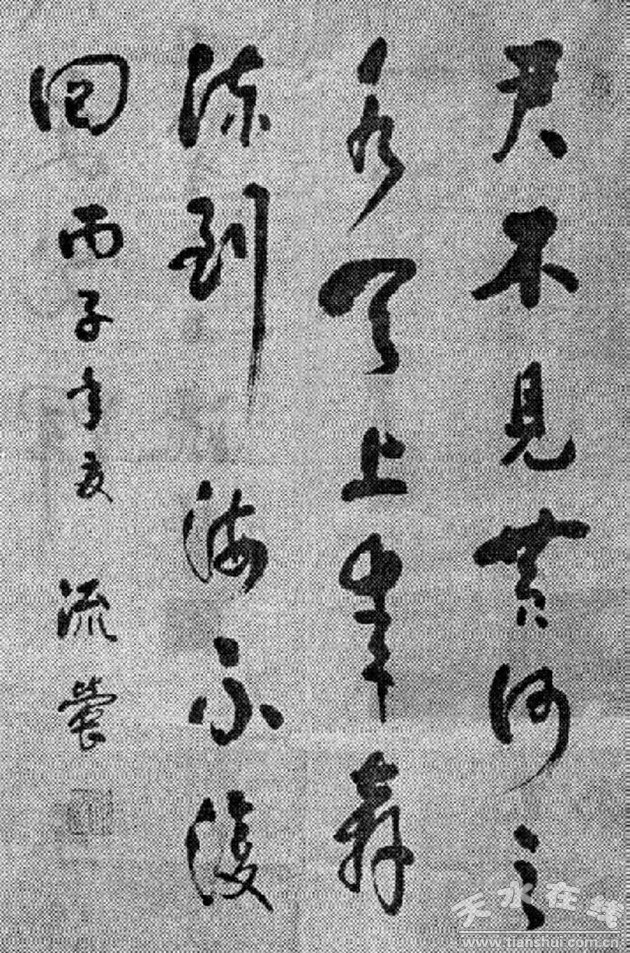 君不見黄河之
水天上来奔
流到海不復
回
丙子年夏 流
天水在线
www.tianshui.com.cn